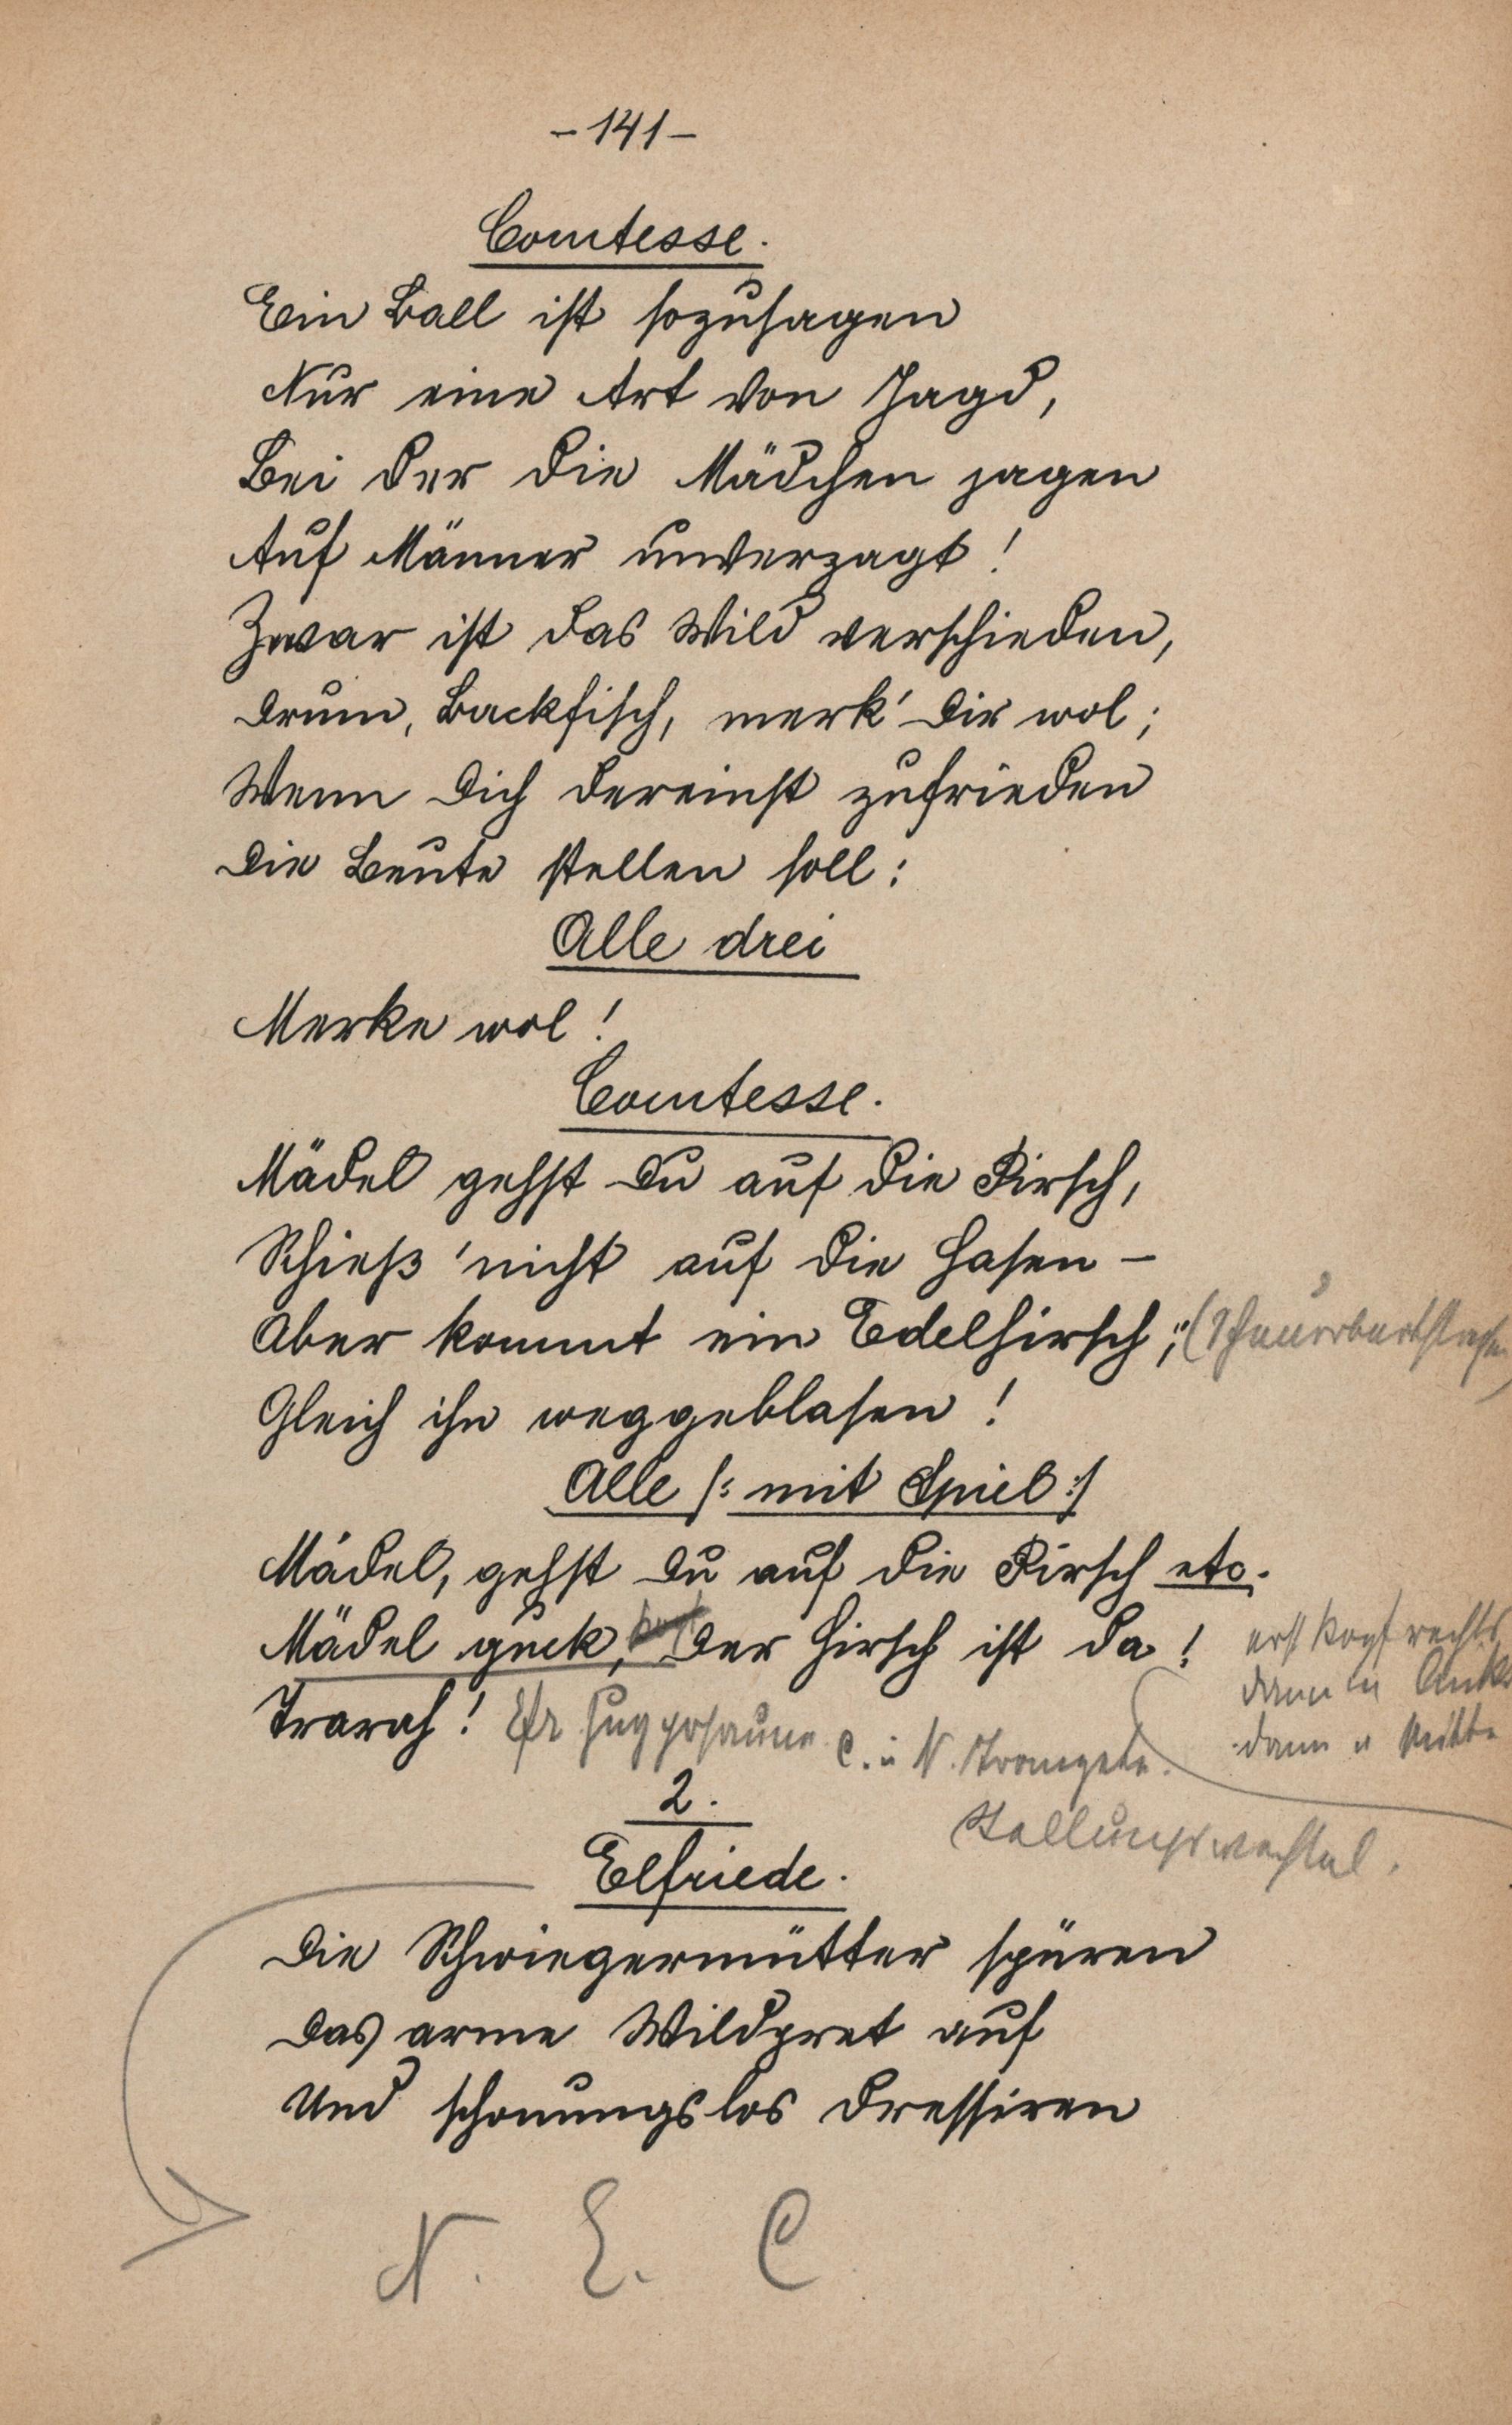 - 141 -
Comtesse.
Ein Ball ist sozusagen
Nur eine Art von Jagd,
Bei der die Mädchen jagen
Auf Männer unverzagt!
Zwar ist das Wild verschieden,
Drum, Backfisch, merk' Dir wol;
Wenn Dich dereinst zufrieden
Die Beute stellen soll:
Alle drei
Merke wol!
Comtesse.
Mädel gehst Du auf die Pirsch,
Schieß' nicht auf die Hasen –
Aber kommt ein Edelhirsch,
Gleich ihn weggeblasen!
Alle /: mit Spiel :/
Mädel, gehst Du auf die Pirsch etc.
Mädel guck, Der Hirsch ist da! erst Kopf rechts
dann links
Trarah! Zugposaune C. u N. Trompete. dann Mitte
2. Stellungswechsel.
Elfriede.
Die Schwiegermütter spüren
Das arme Wildpret auf
Und schonungslos dressiren
N. E. C